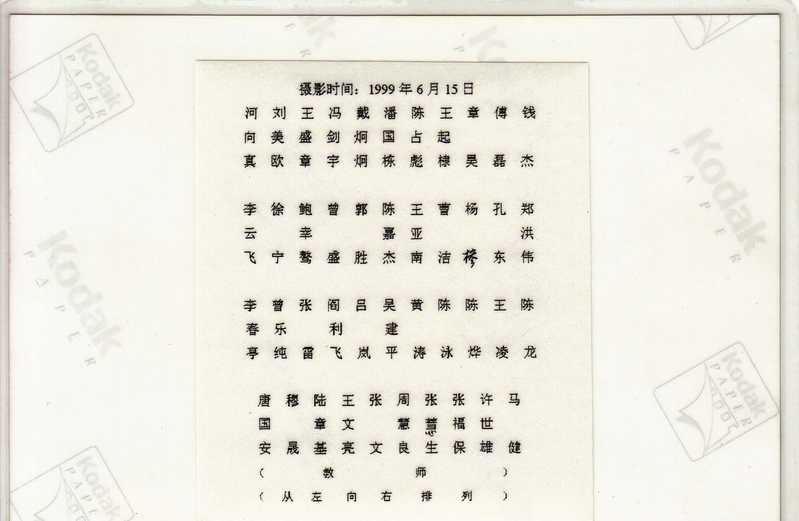 摄影时间：1999年6月15日
河 刘 王 冯 戴 潘 陈 王 章 傅 钱
向 美 盛 剑 炯 国 占 起
真 欧 章 宇 炯 栋 彪 棣 昊 磊 杰
李 徐 鲍 曾 郭 陈 王 曹 杨 孔 郑
云 幸 嘉 亚 洪
飞 宁 骜 盛 胜 杰 南 洁 樛 东 伟
李 曾 张 阎 吕 吴 黄 陈 陈 王 陈
春 乐 利 建
亭 纯 雷 飞 岚 平 涛 泳 烨 凌 龙
唐 穆 陆 王 张 周 张 张 许 马
国 章 文 慧 慧 福 世
安 晟 基 亮 文 良 生 保 雄 健
（ 教 师 ）
（ 从 左 向 右 排 列 ）
Kodak
PAPER
Kodak
PAPER
Kodak
PAPER
Kodak
PAPER